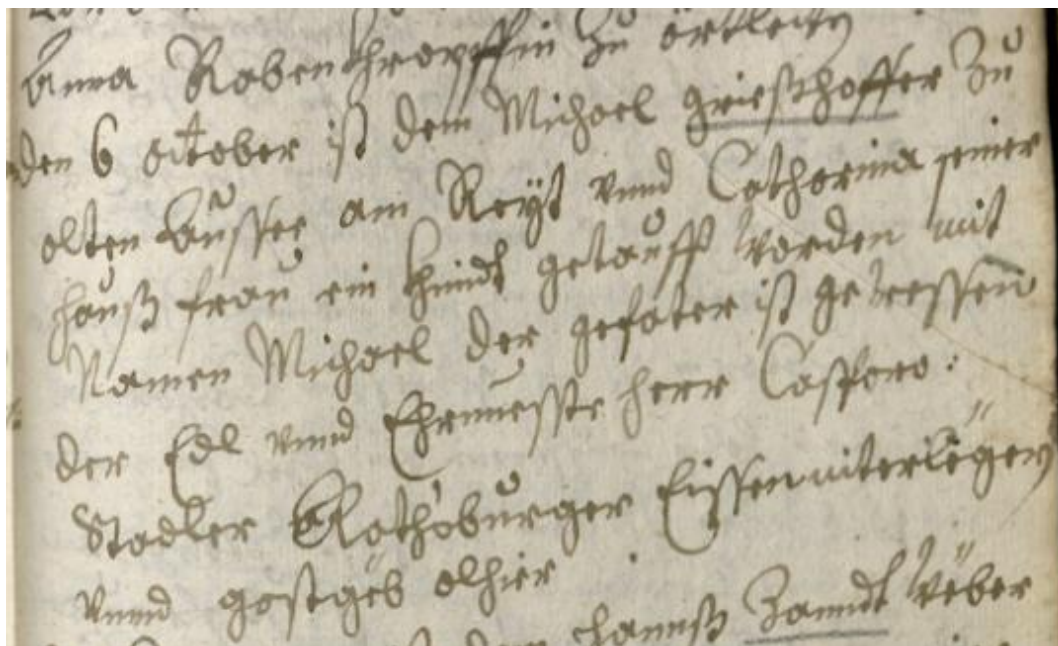 Anna Rabenkhropffin Zu örtleiten
den 6 october ist dem Michael Grieshoffer Zu
alten Aussee am Reÿt vnnd Catharina seiner
hauß frau ein khindt getaufft worden mit
Namen Michael der gefater ist gewessen
der Edl vnnd Ehrnuesste herr Casparo:
Stadler Rathsburger Eissenuiterleger
vnnd gastgeb alhier
hannß Zanndt Weber